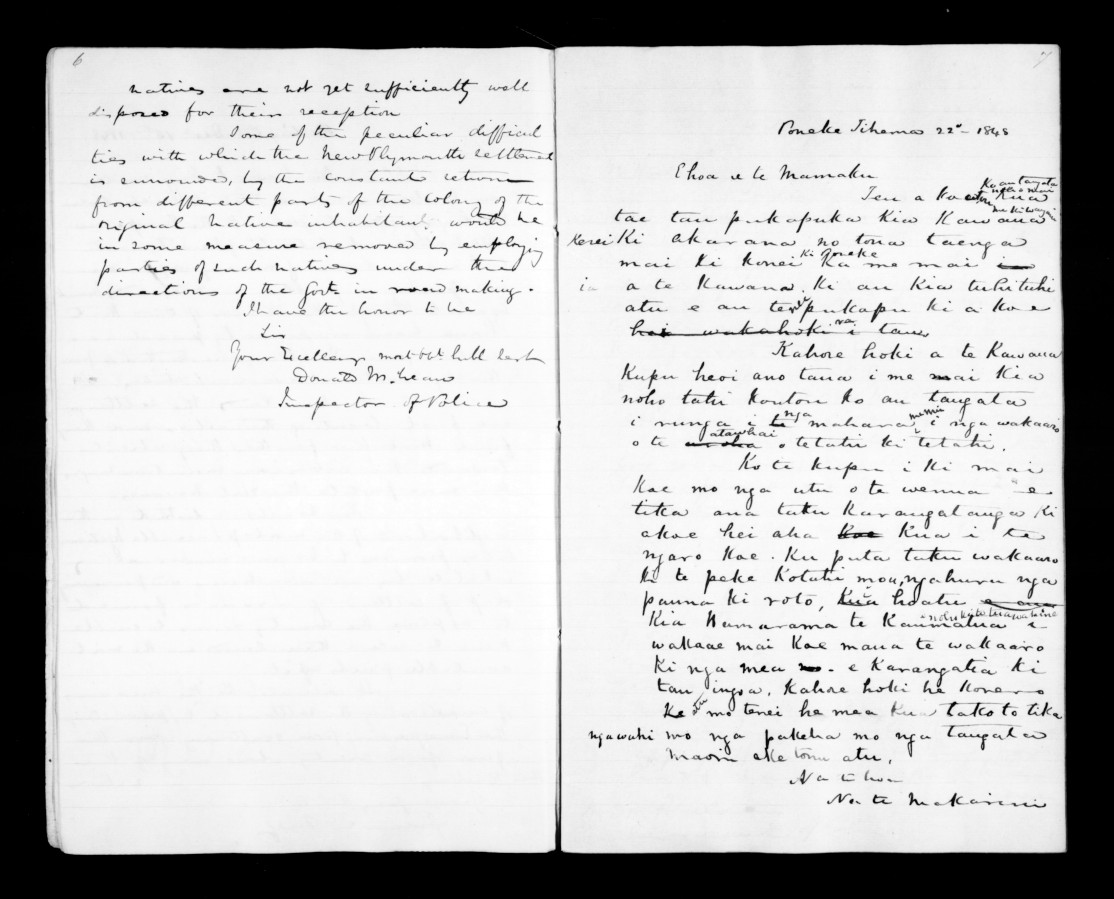 6
natives are not yet sufficiently well
disposed for their reception
Some of the peculiar difficul
ties with which the New Plymouth settlement
is surrounded, by the constant return
from different parts of the Colony of the
original native inhabitants would be
in some measure removed by employing
parties of such natives under the
directions of the Govt in road making.
I have the honor to be
Sir
Your Excellencys most obt humb servt
Donald McLean
Inspector of Police
7
Poneke Tihema 22d 1848
Ehoa e te Mamaku
Tena koe
Ko au tangata
noho mai
Kua
tae tau pukapuka kia Kawana
kerei ki akarana no tona taenga
mai ki konei ki Poneke ka me mai
ia
a te Kawana ki au kia tuhituhi
atu e au pukapu ki a koe
hei wakahoki i tau
Kahore hoki a te Kawana
kupu heoi ano tana i me mai kia
noho tahi koutou ko au tangata
i runga i te nga mahara i nga wakaaro
o te aroha atawhai o tetahi ki tetahi.
Ko te kupu i ki mai
koe mo nga utu o te wenua e
tika ana taku karangatanga ki
a koe hei aha koe kua i te
ngaro koe. Ku puta taku wakaaro
ki te peke kotahi mou, ngahuru nga
pauna ki roto, kua hoatu e au
kia Kumarama te Kaumatua i
wakaae mai koe mana te wakaaro
ki nga mea e karangatia ki
tau ingoa, kahore hoki he korero
ke mo tenei he mea kua takoto tika
nga wahi mo nga pakeha mo nga tangata
maori ake tonu atu.
Na to hoa
Na te Makarini